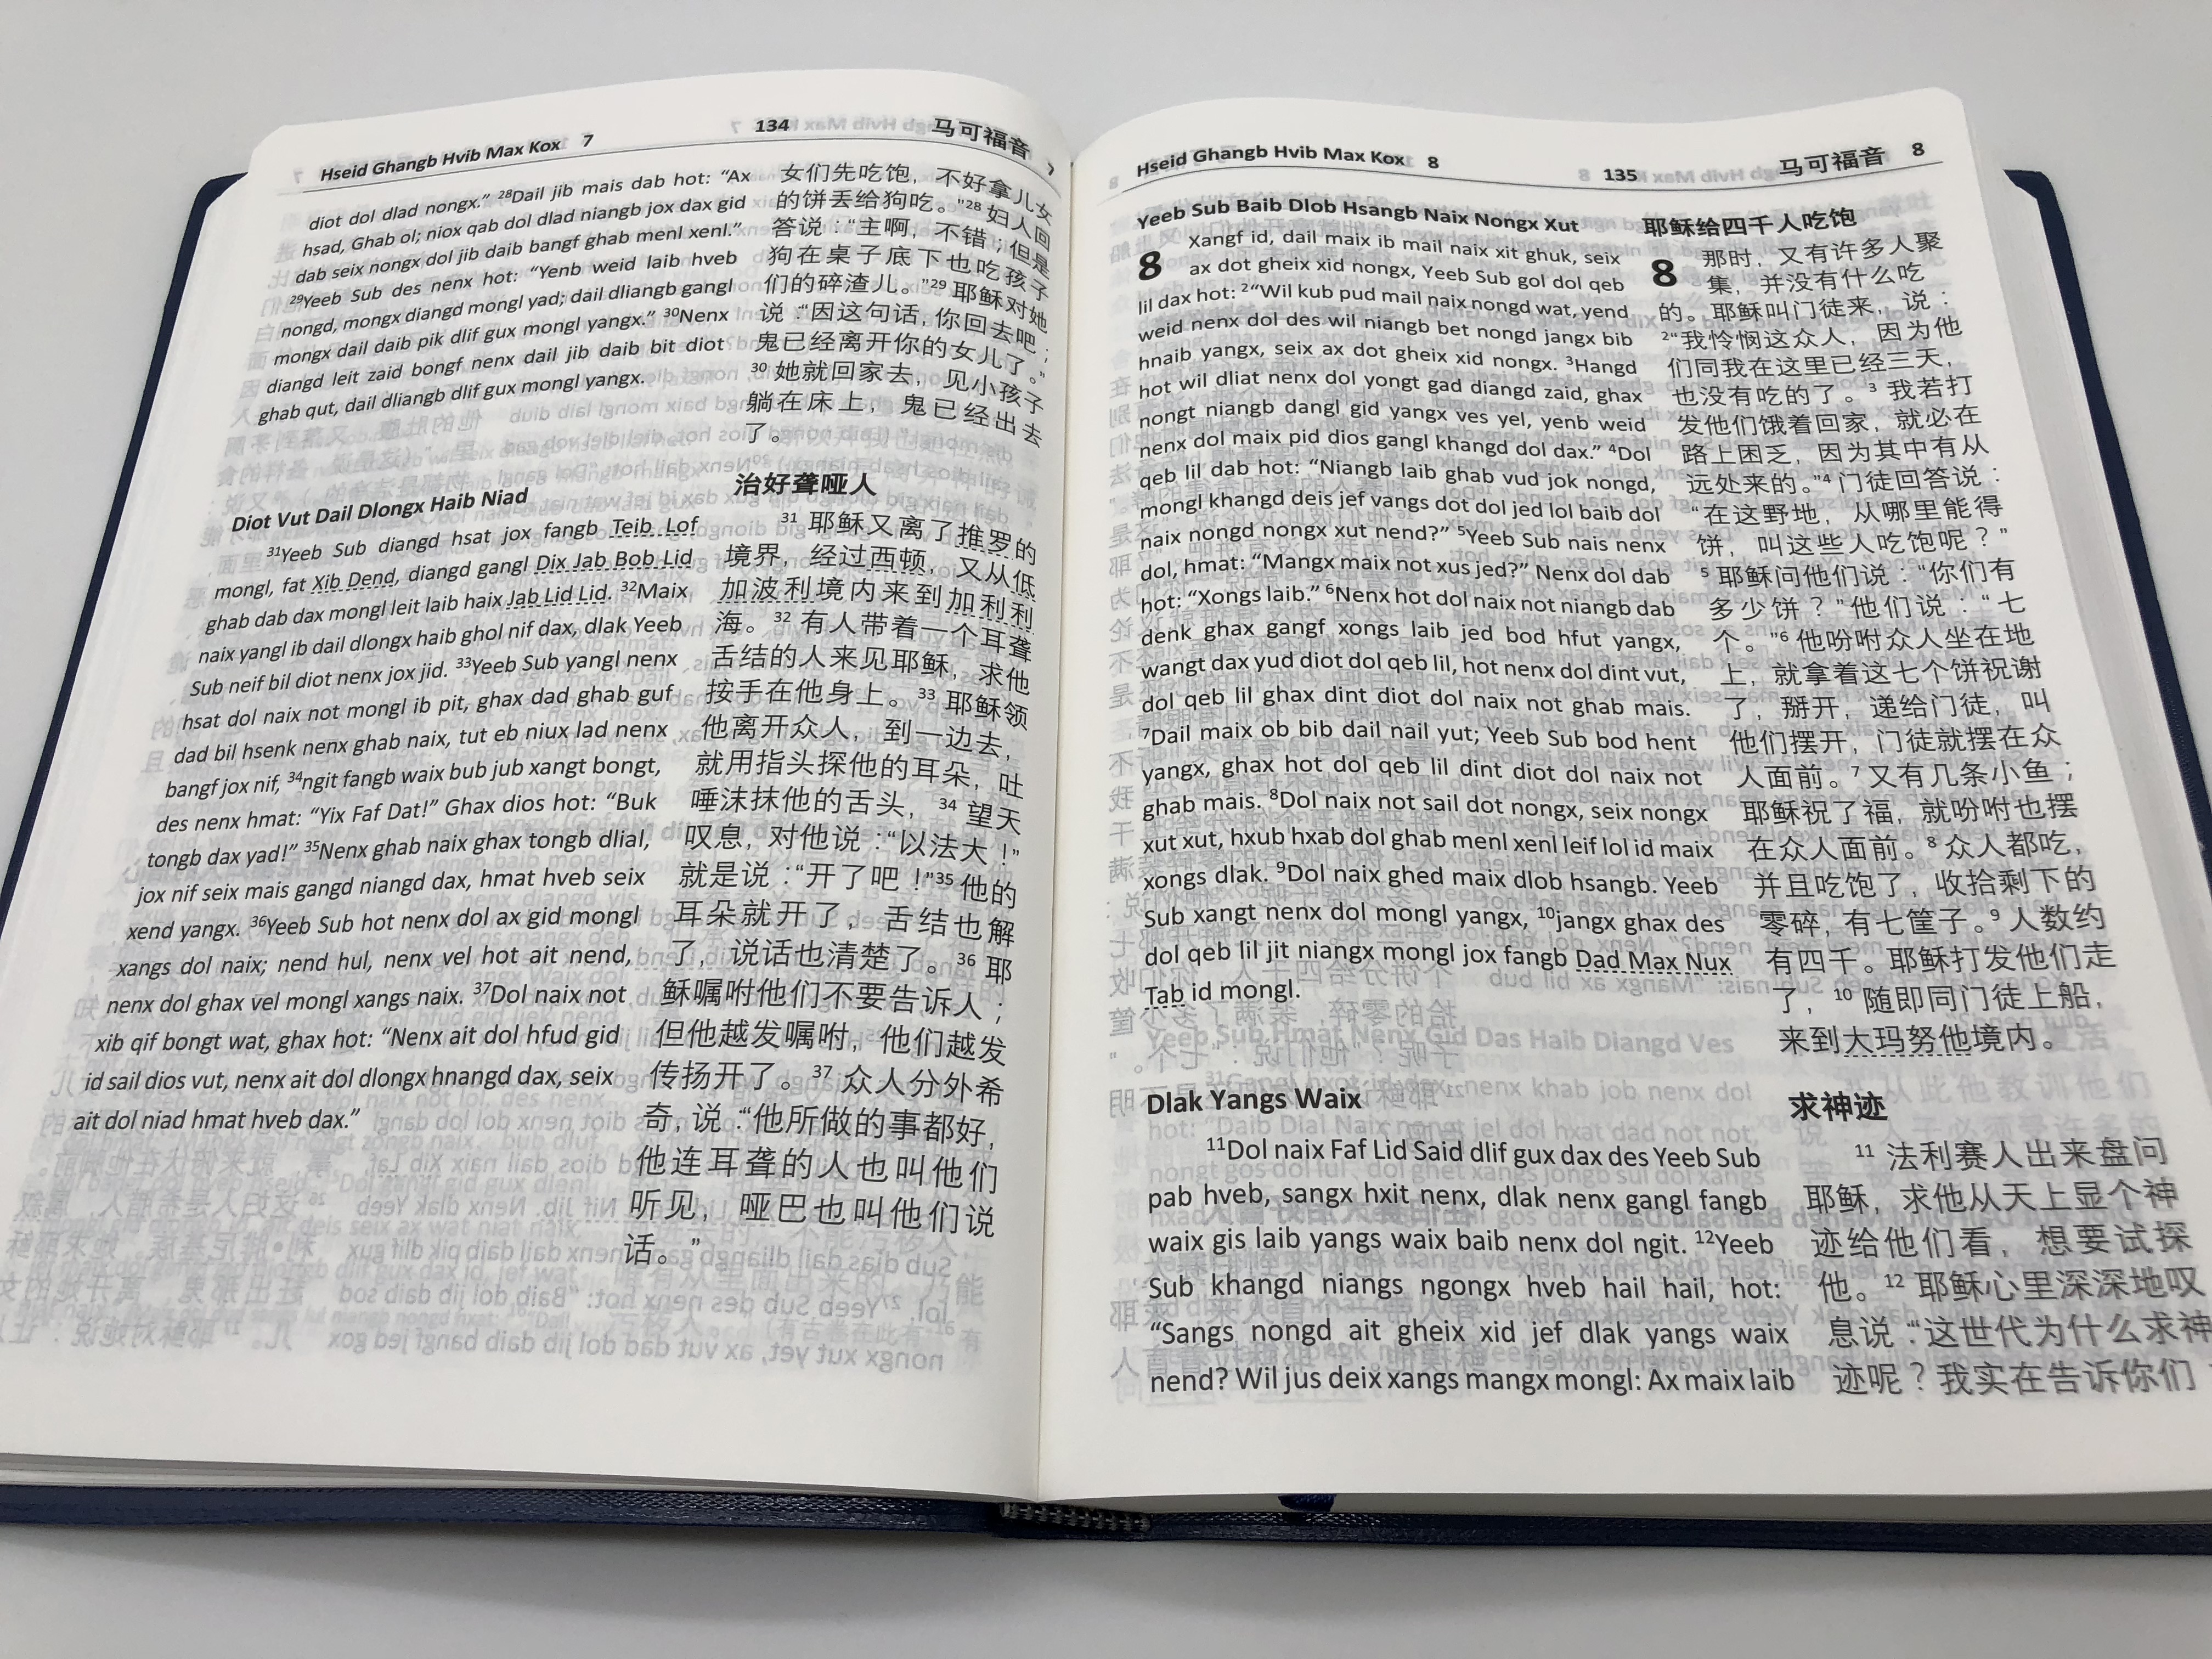 Hseid Ghangb Hvib Max Kox 7
134
马可福音
diot dol dlad nongx.” ²⁸Dail jib mais dab hot: “Ax
hsad, Ghab ol; niox qab dol dlad niangb jox dax gid
dab seix nongx dol jib daib bangf ghab menl xenl.”
²⁹Yeeb Sub des nenx hot: “Yenb weid laib hveb
nongd, mongx diangd mongl yad; dail dliangb gangl
mongx dail daib pik dlif gux mongl yangx.” ³⁰Nenx
diangd leit zaid bongf nenx dail jib daib bit diot
ghab qut, dail dliangb dlif gux mongl yangx.
Diot Vut Dail Dlongx Haib Niad
³¹Yeeb Sub diangd hsat jox fangb Teib Lof
mongl, fat Xib Dend, diangd gangl Dix Jab Bob Lid
ghab dab dax mongl leit laib haix Jab Lid Lid. ³²Maix
naix yangl ib dail dlongx haib ghol nif dax, dlak Yeeb
Sub neif bil diot nenx jox jid. ³³Yeeb Sub yangl nenx
hsat dol naix not mongl ib pit, ghax dad ghab guf
dad bil hsenk nenx ghab naix, tut eb niux lad nenx
bangf jox nif, ³⁴ngit fangb waix bub jub xangt bongt,
des nenx hmat: “Yix Faf Dat!” Ghax dios hot: “Buk
tongb dax yad!” ³⁵Nenx ghab naix ghax tongb dlial,
jox nif seix mais gangd niangd dax, hmat hveb seix
xend yangx. ³⁶Yeeb Sub hot nenx dol ax gid mongl
xangs dol naix; nend hul, nenx vel hot ait nend,
nenx dol ghax vel mongl xangs naix. ³⁷Dol naix not
xib qif bongt wat, ghax hot: “Nenx ait dol hfud gid
id sail dios vut, nenx ait dol dlongx hnangd dax, seix
ait dol niad hmat hveb dax.”
女们先吃饱，不好拿儿女
的饼丢给狗吃。”²⁸ 妇人回
答说：“主啊，不错；但是
狗在桌子底下也吃孩子
们的碎渣儿。”²⁹ 耶稣对她
说：“因这句话，你回去吧；
鬼已经离开你的女儿了。”
³⁰ 她就回家去，见小孩子
躺在床上，鬼已经出去
了。
治好聋哑人
³¹ 耶稣又离了推罗的
境界，经过西顿，又从低
加波利境内来到加利利
海。³² 有人带着一个耳聋
舌结的人来见耶稣，求他
按手在他身上。³³ 耶稣领
他离开众人，到一边去，
就用指头探他的耳朵，吐
唾沫抹他的舌头，³⁴ 望天
叹息，对他说：“以法大！”
就是说：“开了吧！”³⁵ 他的
耳朵就开了，舌结也解
了，说话也清楚了。³⁶ 耶
稣嘱咐他们不要告诉人；
但他越发嘱咐，他们越发
传扬开了。³⁷ 众人分外希
奇，说：“他所做的事都好，
他连耳聋的人也叫他们
听见，哑巴也叫他们说
话。”
Hseid Ghangb Hvib Max Kox 8
135
马可福音 8
Yeeb Sub Baib Dlob Hsangb Naix Nongx Xut
8 Xangf id, dail maix ib mail naix xit ghuk, seix
ax dot gheix xid nongx, Yeeb Sub gol dol qeb
lil dax hot: ²“Wil kub pud mail naix nongd wat, yend
weid nenx dol des wil niangb bet nongd jangx bib
hnaib yangx, seix ax dot gheix xid nongx. ³Hangd
hot wil dliat nenx dol yongt gad diangd zaid, ghax
nongt niangb dangl gid yangx ves yel, yenb weid
nenx dol maix pid dios gangl khangd dol dax.” ⁴Dol
qeb lil dab hot: “Niangb laib ghab vud jok nongd,
mongl khangd deis jef vangs dot dol jed lol baib dol
naix nongd nongx xut nend?” ⁵Yeeb Sub nais nenx
dol, hmat: “Mangx maix not xus jed?” Nenx dol dab
hot: “Xongs laib.” ⁶Nenx hot dol naix not niangb dab
denk ghax gangf xongs laib jed bod hfut yangx,
wangt dax yud diot dol qeb lil, hot nenx dol dint vut,
dol qeb lil ghax dint diot dol naix not ghab mais.
⁷Dail maix ob bib dail nail yut; Yeeb Sub bod hent
yangx, ghax hot dol qeb lil dint diot dol naix not
ghab mais. ⁸Dol naix not sail dot nongx, seix nongx
xut xut, hxub hxab dol ghab menl xenl leif lol id maix
xongs dlak. ⁹Dol naix ghed maix dlob hsangb. Yeeb
Sub xangt nenx dol mongl yangx, ¹⁰jangx ghax des
dol qeb lil jit niangx mongl jox fangb Dad Max Nux
Tab id mongl.
Dlak Yangs Waix
¹¹Dol naix Faf Lid Said dlif gux dax des Yeeb Sub
pab hveb, sangx hxit nenx, dlak nenx gangl fangb
waix gis laib yangs waix baib nenx dol ngit. ¹²Yeeb
Sub khangd niangs ngongx hveb hail hail, hot:
“Sangs nongd ait gheix xid jef dlak yangs waix
nend? Wil jus deix xangs mangx mongl: Ax maix laib
耶稣给四千人吃饱
8 那时，又有许多人聚
集，并没有什么吃
的。耶稣叫门徒来，说：
²“我怜悯这众人，因为他
们同我在这里已经三天，
也没有吃的了。³ 我若打
发他们饿着回家，就必在
路上困乏，因为其中有从
远处来的。”⁴ 门徒回答说：
“在这野地，从哪里能得
饼，叫这些人吃饱呢？”
⁵ 耶稣问他们说：“你们有
多少饼？”他们说：“七
个。”⁶ 他吩咐众人坐在地
上，就拿着这七个饼祝谢
了，掰开，递给门徒，叫
他们摆开，门徒就摆在众
人面前。⁷ 又有几条小鱼；
耶稣祝了福，就吩咐也摆
在众人面前。⁸ 众人都吃，
并且吃饱了，收拾剩下的
零碎，有七筐子。⁹ 人数约
有四千。耶稣打发他们走
了，¹⁰ 随即同门徒上船，
来到大玛努他境内。
求神迹
¹¹ 法利赛人出来盘问
耶稣，求他从天上显个神
迹给他们看，想要试探
他。¹² 耶稣心里深深地叹
息说：“这世代为什么求神
迹呢？我实在告诉你们